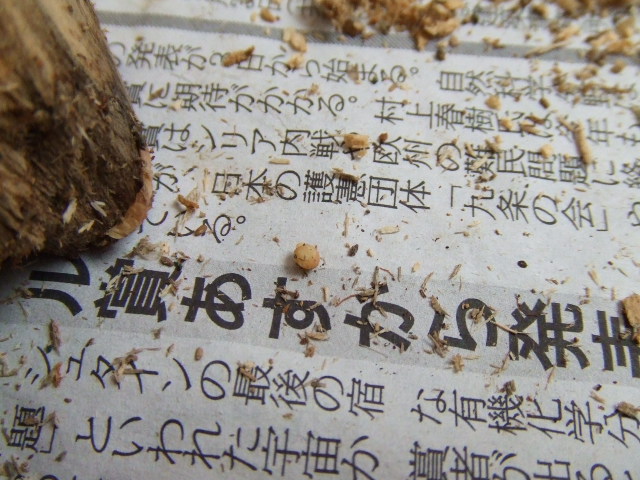 の発表が3日から始まる。自然科学
賞に期待がかかる。村上春樹氏は今年も
賞はシリア内戦や欧州の難民問題に
が、日本の護憲団体「九条の会」や
ている。
ル賞あすから発表
シュタインの最後の宿
題」といわれた宇宙か
な有機化学分
賞者が出る